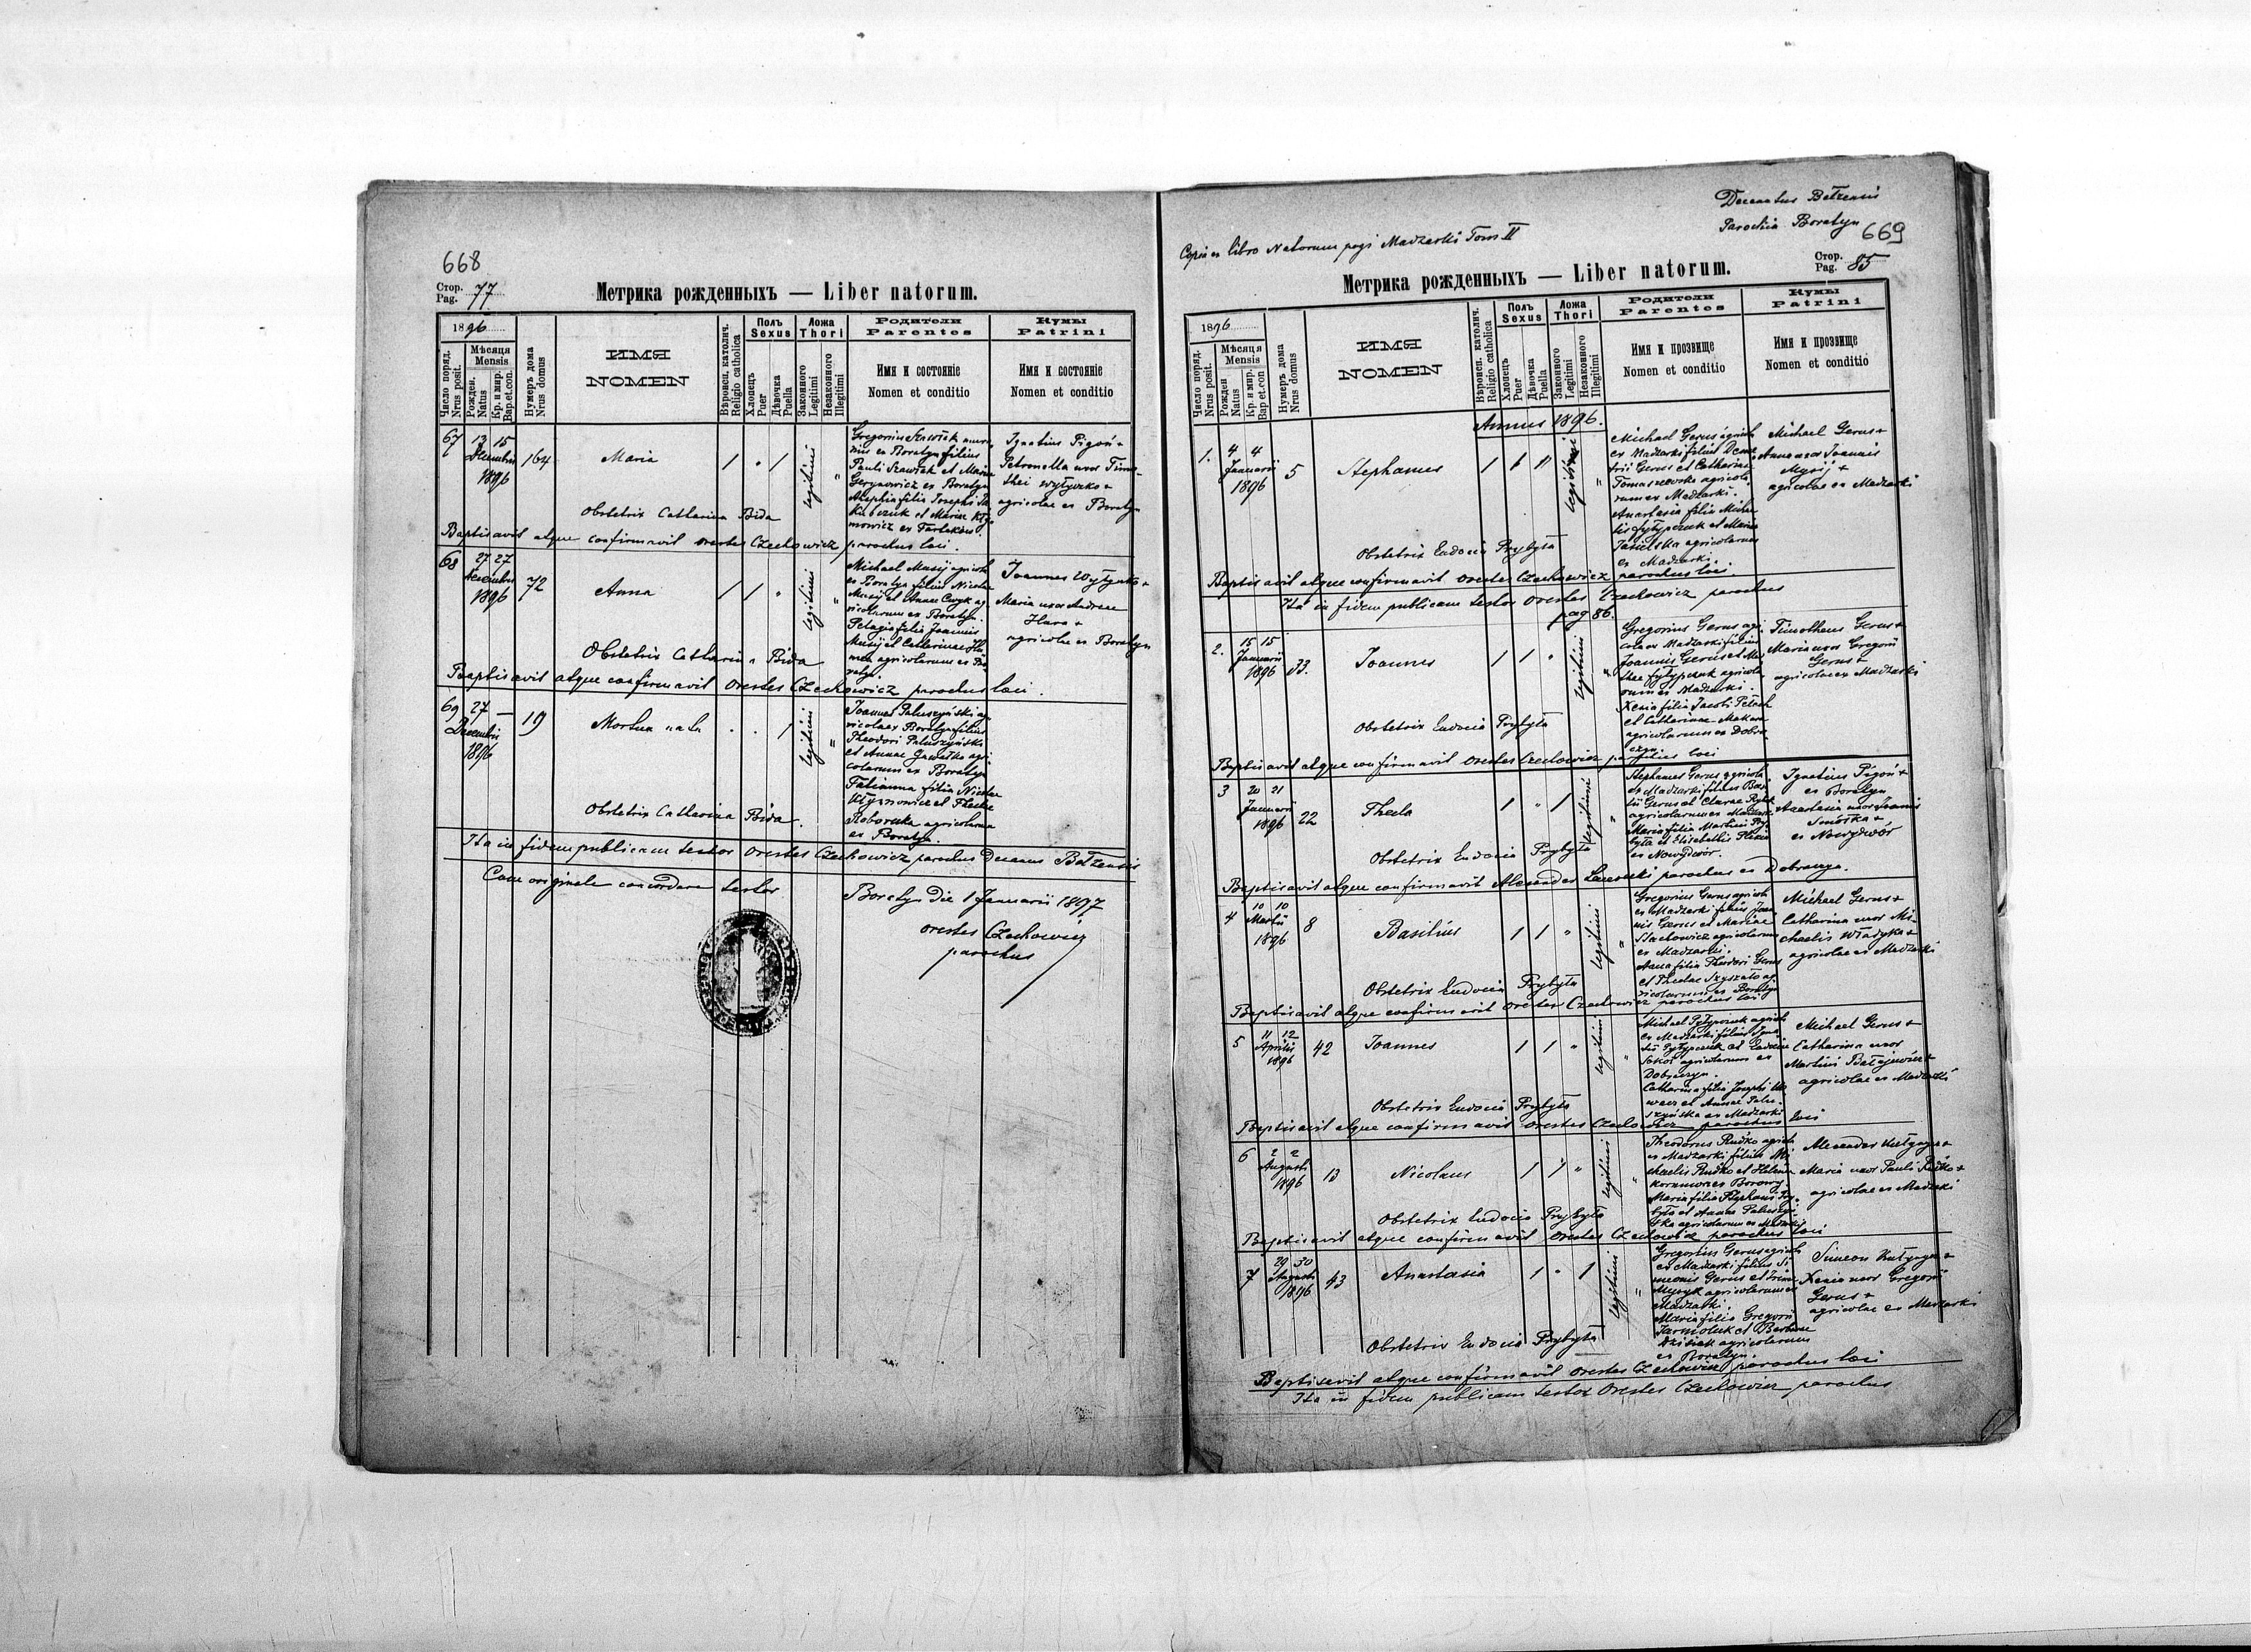 668
Стор. Pag. 77
Метрика рожденныхъ — Liber natorum.
1896
Число поряд. Nrus posit.
Мѣсяця Mensis
Рожден. Natus
Кр. и мир. Bap.et.con.
Нумеръ дома Nrus domus
ИМЯ
NOMEN
Вѣроисп. католич. Religio catholica
Полъ Sexus
Хлопець Puer
Дѣвочка Puella
Ложа Thori
Законного Legitimi
Незаконного Illegitimi
Родители
Parentes
Имя и состояніе
Nomen et conditio
Кумы
Patrini
Имя и состояніе
Nomen et conditio
67 13 15 Decembri 1896 164 Maria 1 " 1 legitimi "
Pauli Szawlak et Mariae
Gerynowicz ex Boratyn
Ignatius Pigoń +
Petronella uxor Timo-
thei Wytyczko +
agricolae ex Boratyn
Obstetrix Catharina Bida
Baptisavit atque confirmavit Orestes Czechowicz parochus loci.
68 27 27 Decembri 1896 72 Anna 1 1 " legitimi "
Michael Musij agricola
ex Boratyn filius Nicolai
Musij et Annae Cwyk ag-
ricolarum ex Boratyn.
Pelagia filia Joannis
Musij et Catharinae
agricolarum ex Bo-
ratyn.
Joannes Wytyczko +
Maria uxor Andreae
Hara +
agricolae ex Boratyn
Obstetrix Catharina Bida
Baptisavit atque confirmavit Orestes Czechowicz parochus loci.
69 27 — Decembri 1896 19 Mortua nata . . 1 legitimi "
Joannes Paluszyński ag-
ricola ex Boratyn filius
Theodori Paluszyński
et Annae Gawałko agri-
colarum ex Boratyn
Tatianna filia Nicolai
Kłymowicz et Theclae
agricolarum
ex Boratyn.
Obstetrix Catharina Bida.
Ita in fidem publicam testor Orestes Czechowicz parochus Decanus Bełzensis
Cum originale concordare testor
Boratyn die 1 Januarii 1897
Orestes Czechowicz
parochus
Decanatus Bełzensis
Parochia Boratyn
669
Copia ex libro Natorum pagi Madzarki Tom II
Стор. Pag. 85
Метрика рожденныхъ — Liber natorum.
1896
Число поряд. Nrus posit.
Мѣсяця Mensis
Рожден Natus
Кр. и мир. Bap et con
Нумеръ дома Nrus domus
ИМЯ
NOMEN
Вѣроисп. католич. Religio catholica
Полъ Sexus
Хлопець Puer
Дѣвочка Puella
Ложа Thori
Законного Legitimi
Незаконного Illegitimi
Родители
Parentes
Имя и прозвище
Nomen et conditio
Кумы
Patrini
Имя и прозвище
Nomen et conditio
Annus 1896.
1. 4 4 Januarii 1896 5 Stephanus 1 1 " legitimi "
Michael Gerus agricola
ex Madzarki filius Deme-
trii Gerus et Catharinae
Tomaszewska agricola-
rum ex Madzarki.
Anastasia filia Micha-
lis Pytypczuk et Maria
Jasielska agricolarum
ex Madzarki.
Michael Gerus +
Anna uxor Joannis
Musij +
agricolae ex Madzarki
Obstetrix Eudocia Prybyła
Baptisavit atque confirmavit Orestes Czechowicz parochus loci.
Ita in fidem publicam testor Orestes Czechowicz parochus
pag 86.
2. 15 15 Januarii 1896 33. Joannes 1 1 " legitimi "
Gregorius Gerus agri-
cola ex Madzarki filius
Joannis Gerus et
Pytypczuk agricola-
rum ex Madzarki.
Xenia filia Jacobi
et Catharinae
agricolarum ex Dobra-
czyn.
Timotheus Gerus +
Maria uxor Gregorii
Gerus +
agricolae ex Madzarki
Obstetrix Eudocia Prybyła
Baptisavit atque confirmavit Orestes Czechowicz parochus loci
3 20 21 Januarii 1896 22 Thecla 1 " 1 legitimi "
Stephanus Gerus agricola
ex Madzarki filius Basi-
lii Gerus et Clarae
agricolarum ex Madzarki
Maria filia Martini Pry-
była et Elisabethis
ex Nowydwór.
Ignatius Pigoń +
ex Boratyn
Anastasia uxor Joannis
ex Nowydwór
Obstetrix Eudocia Prybyła
Baptisavit atque confirmavit Alexander parochus ex Dobraczyn.
4 10 10 Martii 1896 8 Basilius 1 1 " legitimi "
Gregorius Gerus agricola
ex Madzarki filius Joan-
nis Gerus et Mariae
Stachowicz agricolarum
ex Madzarki.
Anna filia Theodori Gerus
et Theclae
ricolarum ex Boratyn
Michael Gerus +
Catharina uxor Mi-
chaelis Władyka +
agricolae ex Madzarki
Obstetrix Eudocia Prybyła
Baptisavit atque confirmavit Orestes Czechowicz parochus loci
5 11 12 Aprilis 1896 42 Joannes 1 1 " legitimi "
Michael Pytypczuk agricola
ex Madzarki filius Igna-
tii Pytypczuk et Eudociae
Sokoł agricolarum ex
Dobraczyn.
Catharina filia Josephi
et Annae Palu-
szyńska ex Madzarki
Michael Gerus +
Catharina uxor
Martini +
agricolae ex Madzarki
Obstetrix Eudocia Prybyła
Baptisavit atque confirmavit Orestes Czechowicz parochus loci
6 2 2 Augusti 1896 13 Nicolaus 1 1 " legitimi "
Theodorus Rudko agricola
ex Madzarki filius Mi-
chaelis Rudko et Helena
Maria filia Stephani Pry-
była et Annae Paluszyń-
ska agricolarum ex Madzarki
Alexander +
Maria uxor Pauli Rudko +
agricolae ex Madzarki
Obstetrix Eudocia Prybyła
Baptisavit atque confirmavit Orestes Czechowicz parochus loci
7 29 30 Augusti 1896 43 Anastasia 1 " 1 legitimi "
Gregorius Gerus agricola
ex Madzarki filius Si-
meonis Gerus et
agricolarum ex
Madzarki.
Maria filia Gregorii
Jarmoluk et Barbarae
agricolarum
ex Boratyn.
Simeon +
Xenia uxor Gregorii
Gerus +
agricolae ex Madzarki
Obstetrix Eudocia Prybyła
Baptisavit atque confirmavit Orestes Czechowicz parochus loci
Ita in fidem publicam testor Orestes Czechowicz parochus